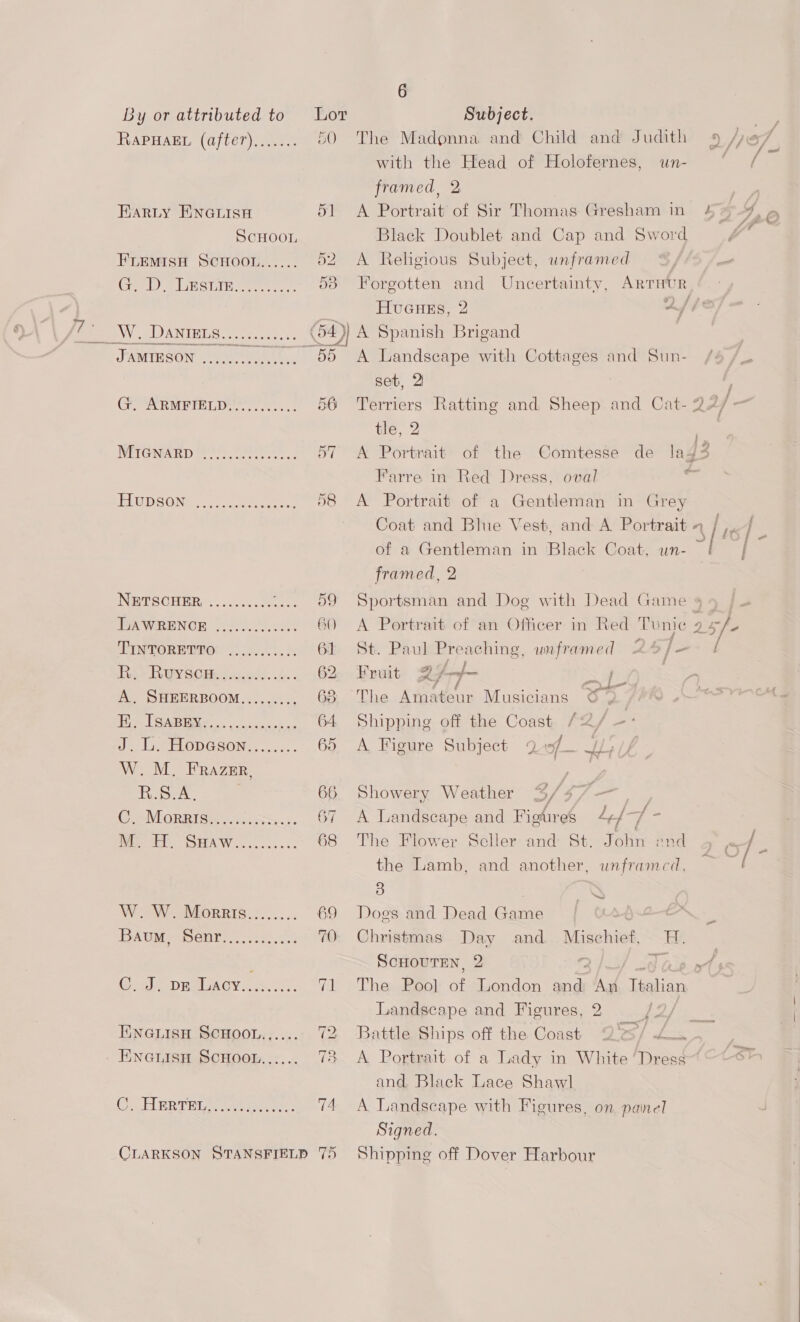 6
By or attributed to Lot Subject.
RAPHAEL (after)....... 50 The Madonna and Child and Judith
with the Head of Holofernes, un-
framed, 2
EARLY ENGLISH 51 A Portrait of Sir Thomas Gresham in
SCHOOL Black Doublet and Cap and Sword
FLEMISH SCHOOL...... 52 A Religious Subject, unframed
G. D. LESLIE........... 53 Forgotten and Uncertainty, ARTHUR
HUGHES, 2
W. DANIELS............ (54) A Spanish Brigand
JAMIESON .............. 55 A Landscape with Cottages and Sun-
set, 2
G. ARMFIELD........... 56 Terriers Ratting and Sheep and Cat- 22/-
tle, 2
MIGNARD .............. 57 A Portrait of the Comtesse de la
Farre in Red Dress, oval
HUDSON ............... 58 A Portrait of a Gentleman in Grey
Coat and Blue Vest, and A Portrait
of a Gentleman in Black Coat, un-
framed, 2
NETSCHER ............. 59 Sportsman and Dog with Dead Game
LAWRENCE ............ 60 A Portrait of an Officer in Red Tunic 25/-
TINTORETTO ........... 61 St. Paul Preaching, unframed 25/-
R. RUYSCH............. 62 Fruit
A. SHEERBOOM......... 63 The Amateur Musicians
E. ISABEY.............. 64 Shipping off the Coast 12/-
J. L. HODGSON........ 65 A Figure Subject
W. M. FRAZER,
R.S.A. 66 Showery Weather
C. MORRIS............. 67 A Landscape and Figures
M. H. SHAW........... 68 The Flower Seller and St. John and
the Lamb, and another, unframed,
3
W. W. MORRIS........ 69 Dogs and Dead Game
BAUM, Senr............. 70 Christmas Day and Mischief, H.
SCHOUTEN, 2
C. J. DE LACY......... 71 The Pool of London and An Italian
Landscape and Figures, 2 12/
ENGLISH SCHOOL...... 72 Battle Ships off the Coast
ENGLISH SCHOOL...... 73 A Portrait of a Lady in White Dress
and Black Lace Shawl
C. HERTEL............. 74 A Landscape with Figures, on panel
Signed.
CLARKSON STANSFIELD 75 Shipping off Dover Harbour